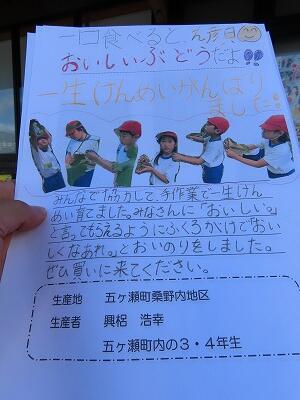 一口食べると、え顔
おいしいぶどうだよ!!
一生けんめいがんばり
ました!!
みんなで協力して、手作業で一生けん
めい育てました。みなさんに「おいしい。」
と言ってもらえるようにふくろかけで「おい
しくなあれ。」とおいのりをしました。
ぜひ買いに来てください。
生産地 五ヶ瀬町桑野内地区
生産者 興梠 浩幸
五ヶ瀬町内の3・4年生